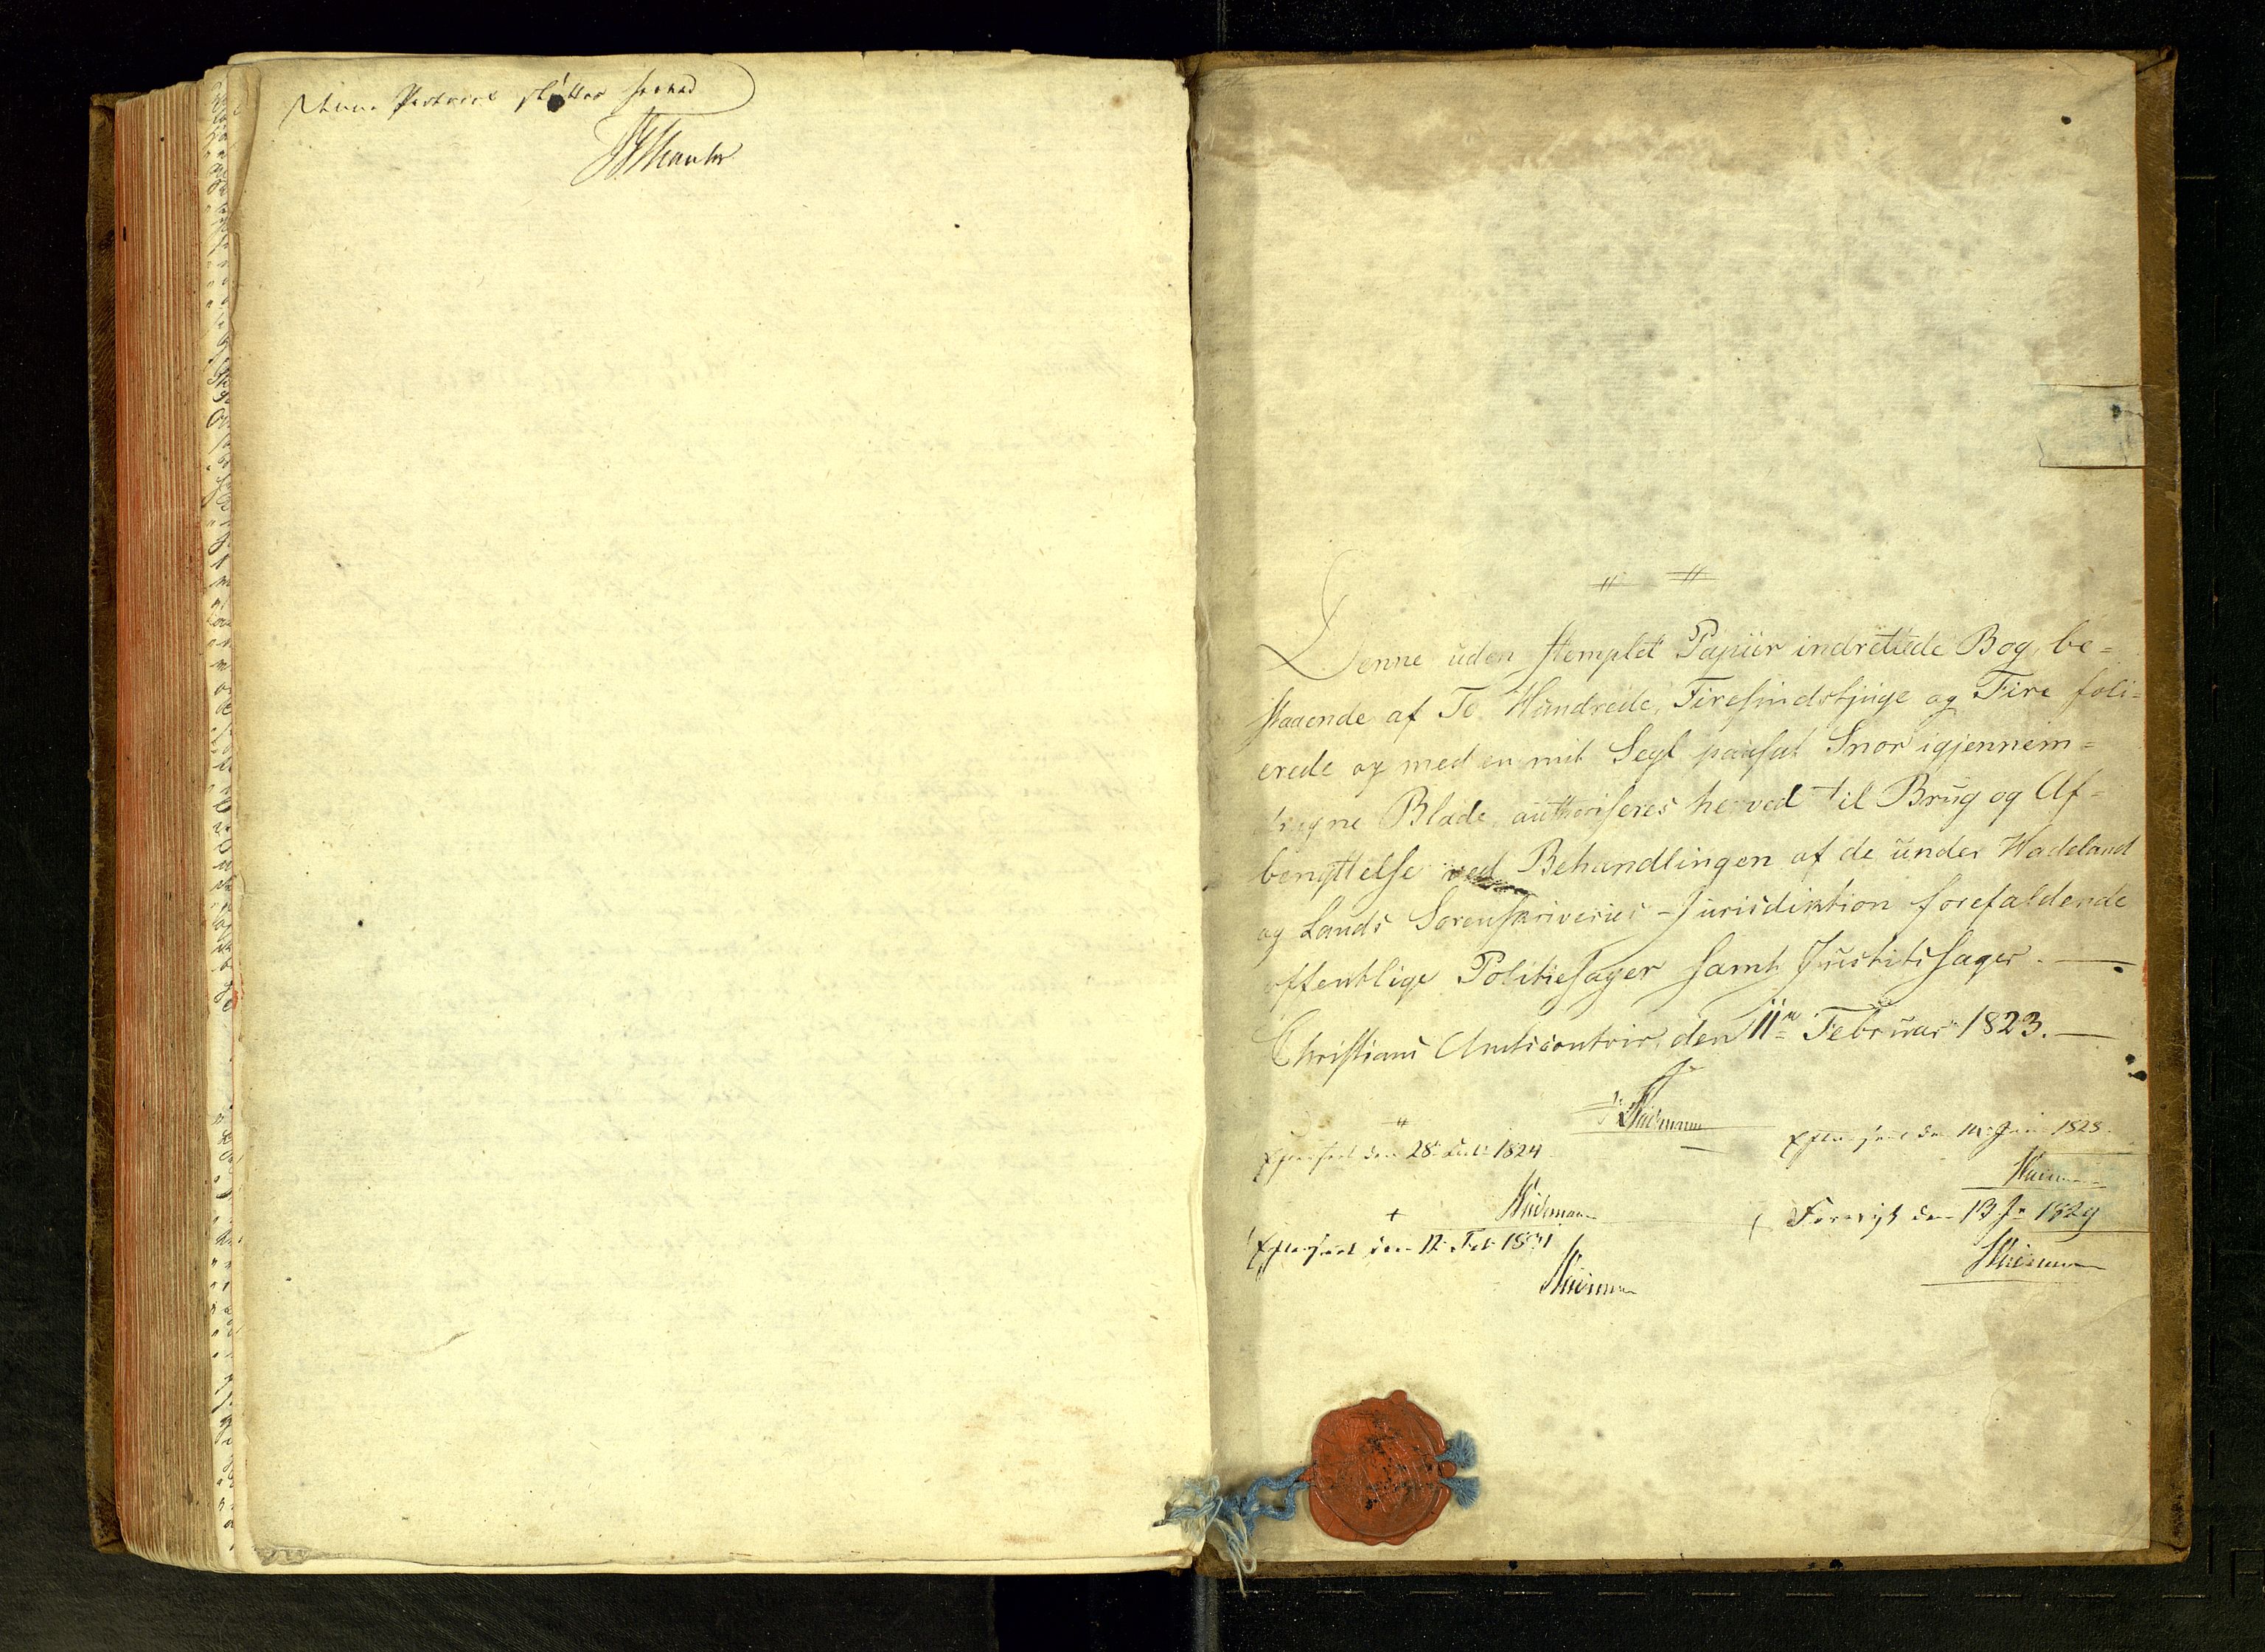 Denne Protocol sluttes herved
Denne uden stemplet Papiir indrettede Bog, be=
staaende af To Hundrede, Firesindstyve og Fire foli=
erede og med en mit Segl paasat Snor igjennem=
dragne Blade, authoriseres herved til Brug og Af=
benyttelse ved Behandlingen af de under Hadeland
og Lands Sorenskriveries-Jurisdiktion forefaldende
offentlige Politiesager samt Justitssager. —
Christians Amtscontoir, den 11te Februar 1823. —
Efterseet den 28 Juli 1824
Efterseet den 14 Juni 1828.
Foreviist den 13 Jn 1829
Efterseet den 12 Feb 1831